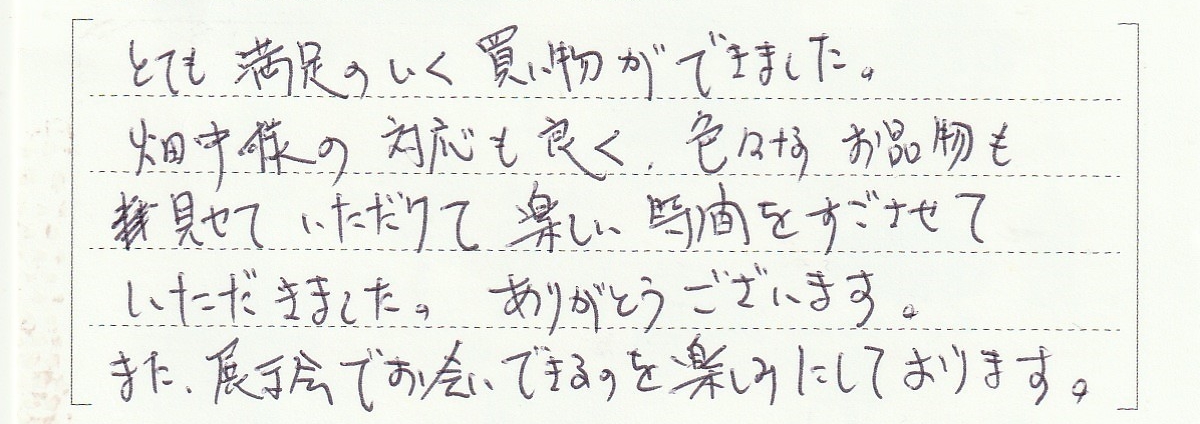 とても 満足のいく 買い物ができました。
畑中様の 対応も良く、色々な お品物も
見せて いただけて 楽しい 時間をすごさせて
いただきました。 ありがとうございます。
また、展示会でお会いできるのを楽しみにしております。